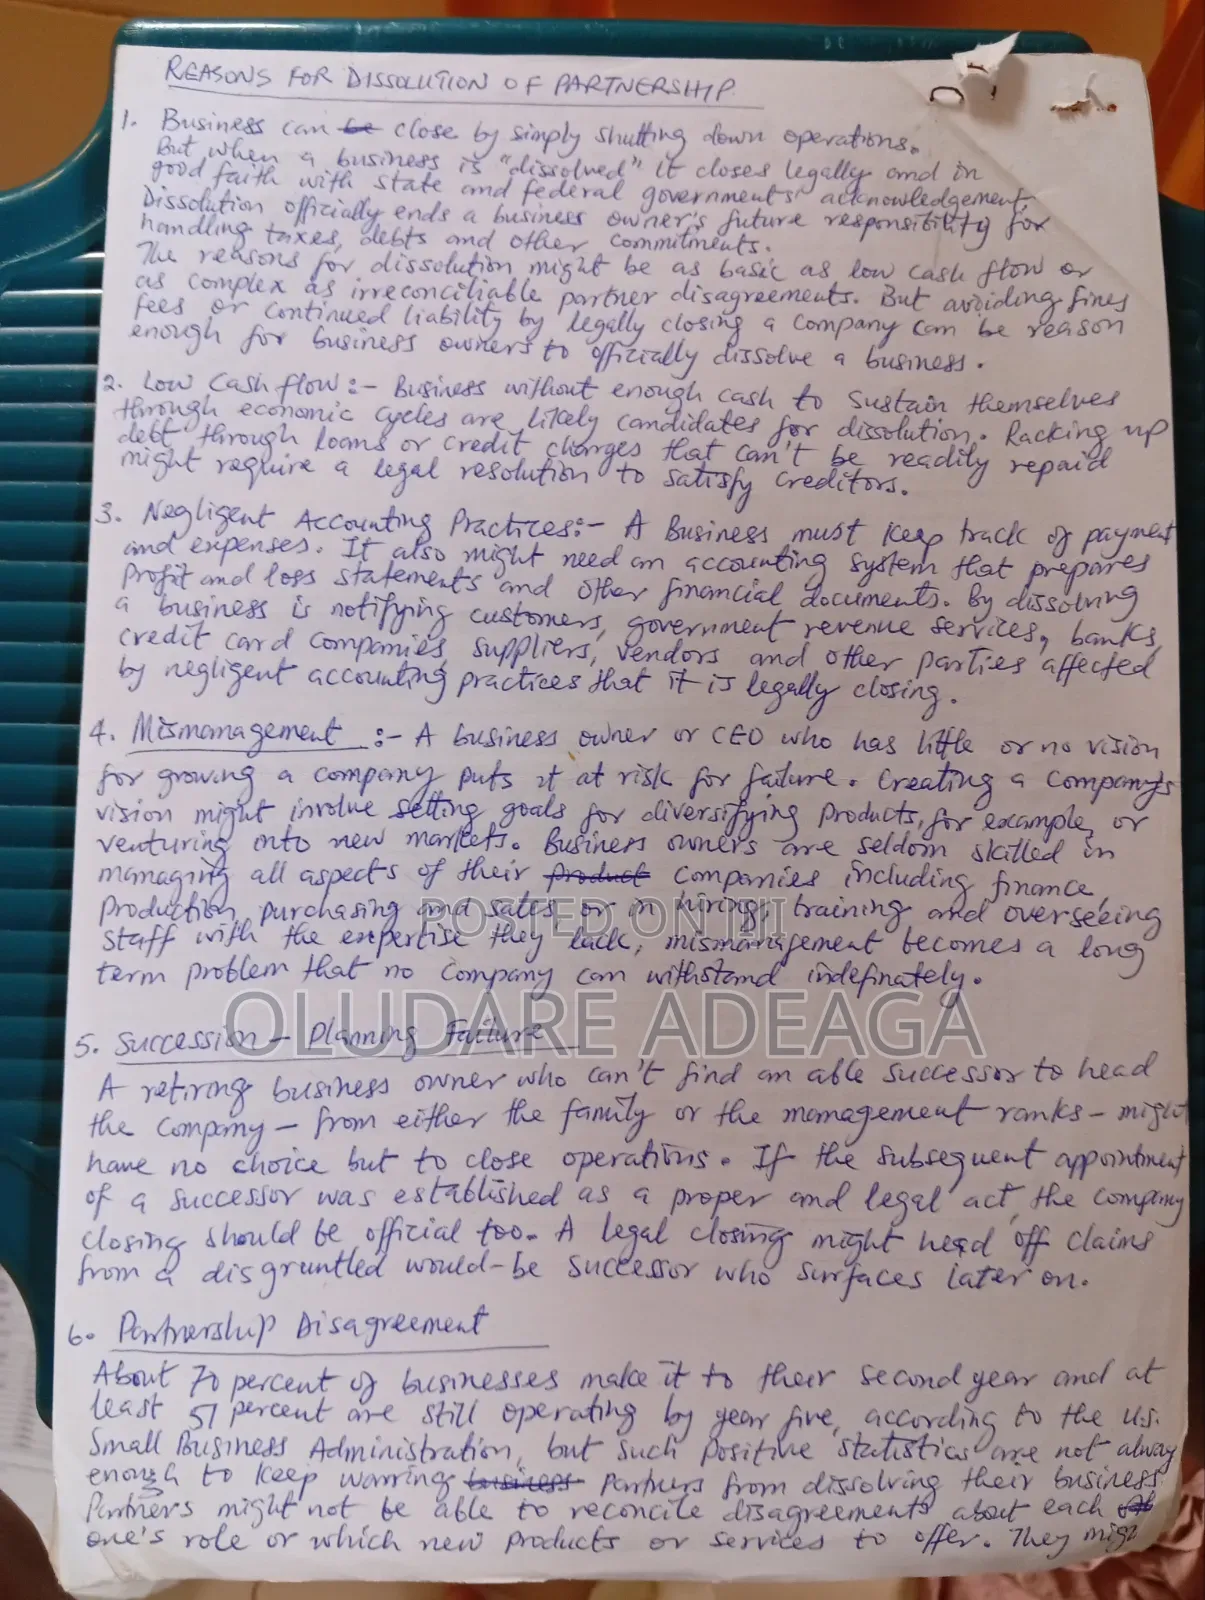 REASONS FOR DISSOLUTION OF PARTNERSHIP.
1. Business can be close by simply shutting down operations.
But when a business is "dissolved" it closes legally and in
good faith with state and federal governments' acknowledgement.
Dissolution officially ends a business owner's future responsibility for
handling taxes, debts and other commitments.
The reasons for dissolution might be as basic as low cash flow or
as complex as irreconciliable partner disagreements. But avoiding fines
fees or continued liability by legally closing a company can be reason
enough for business owners to officially dissolve a business.
2. Low Cash flow:- Business without enough cash to sustain themselves
through economic cycles are likely candidates for dissolution. Racking up
debt through loans or credit charges that can't be readily repaid
might require a legal resolution to satisfy creditors.
3. Negligent Accounting Practices:- A Business must keep track of payment
and expenses. It also might need an accounting system that prepares
profit and loss statements and other financial documents. By dissolving
a business is notifying customers, government revenue services, banks,
credit card companies, suppliers, vendors and other parties affected
by negligent accounting practices that it is legally closing.
4. Mismanagement :- A business owner or CEO who has little or no vision
for growing a company puts it at risk for failure. Creating a company's
vision might involve setting goals for diversifying products, for example, or
venturing into new markets. Business owners are seldom skilled in
managing all aspects of their product companies including finance,
production, purchasing and sales, or in hiring, training and overseeing
POSTED ON JIJI
staff with the expertise they lack, mismanagement becomes a long
term problem that no company can withstand indefinately.
OLUDARE ADEAGA
5. Succession - Planning Failure
A retiring business owner who can't find an able successor to head
the company - from either the family or the management ranks - might
have no choice but to close operations. If the subsequent appointment
of a successor was established as a proper and legal act, the company
closing should be official too. A legal closing might head off claims
from a disgruntled would-be successor who surfaces later on.
6. Partnership Disagreement
About 70 percent of businesses make it to their second year and at
least 51 percent are still operating by year five, according to the U.S.
Small Business Administration, but such positive statistics are not alway
enough to keep warring business partners from dissolving their business.
Partners might not be able to reconcile disagreements about each
one's role or which new products or services to offer. They migh